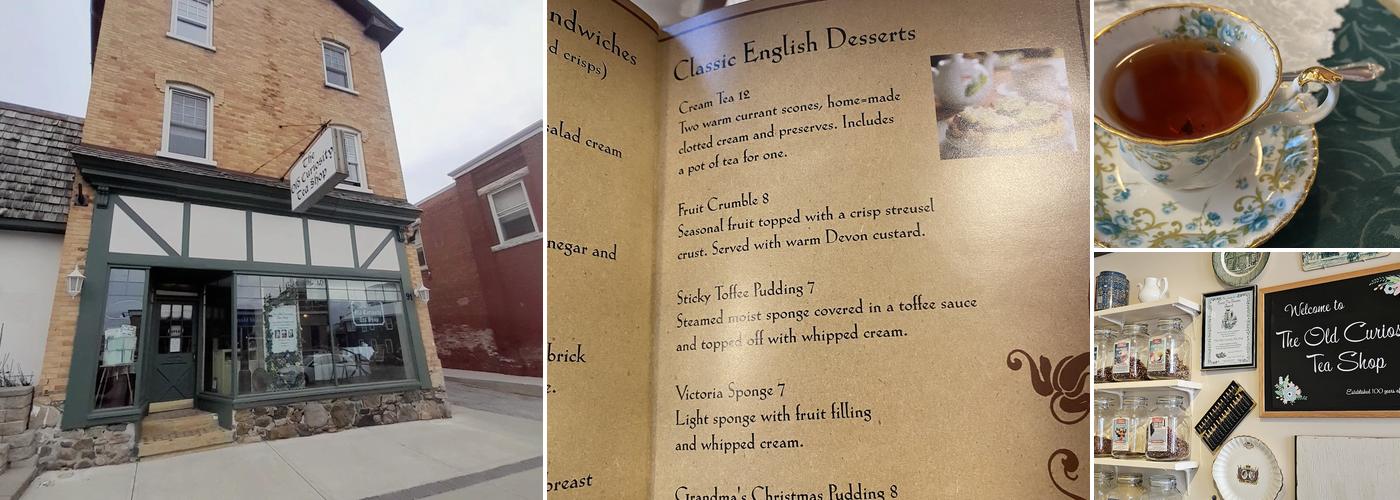 The
Old Curiosity
Tea Shop
Old Curiosity
Tea Shop
ndwiches
d crisps)
salad cream
negar and
brick
e.
breast
Classic English Desserts
Cream Tea 12
Two warm currant scones, home=made
clotted cream and preserves. Includes
a pot of tea for one.
Fruit Crumble 8
Seasonal fruit topped with a crisp streusel
crust. Served with warm Devon custard.
Sticky Toffee Pudding 7
Steamed moist sponge covered in a toffee sauce
and topped off with whipped cream.
Victoria Sponge 7
Light sponge with fruit filling
and whipped cream.
Grandma's Christmas Pudding 8
Welcome to
The Old Curios
Tea Shop
Established 100 years a